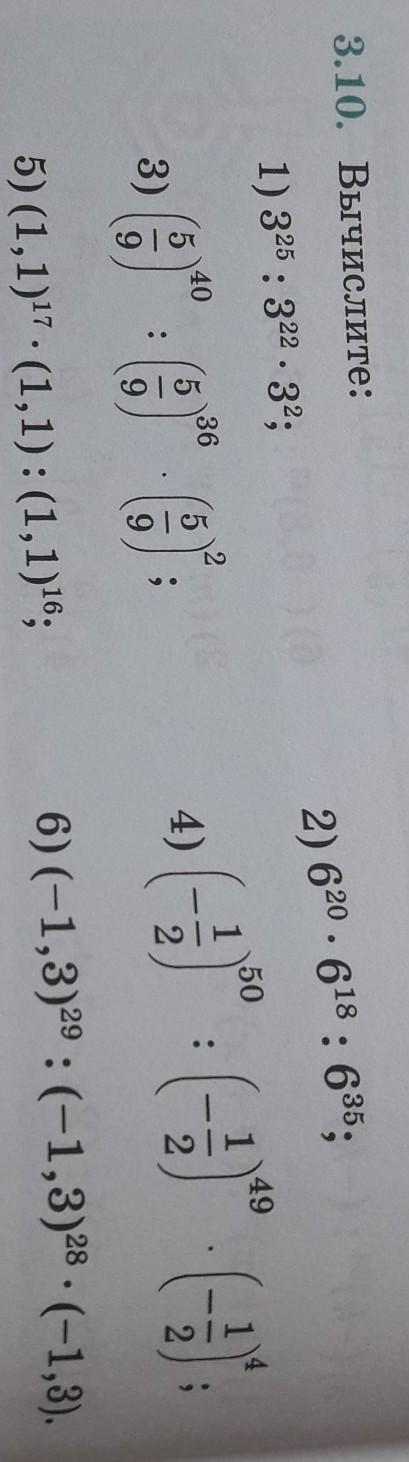 3.10. Вычислите:
1) 3²⁵ : 3²² · 3²; 2) 6²⁰ · 6¹⁸ : 6³⁵;
3) (5/9)⁴⁰ : (5/9)³⁶ · (5/9)²; 4) (−1/2)⁵⁰ : (−1/2)⁴⁹ · (−1/2)⁴;
5) (1,1)¹⁷ · (1,1) : (1,1)¹⁶; 6) (−1,3)²⁹ : (−1,3)²⁸ · (−1,3).